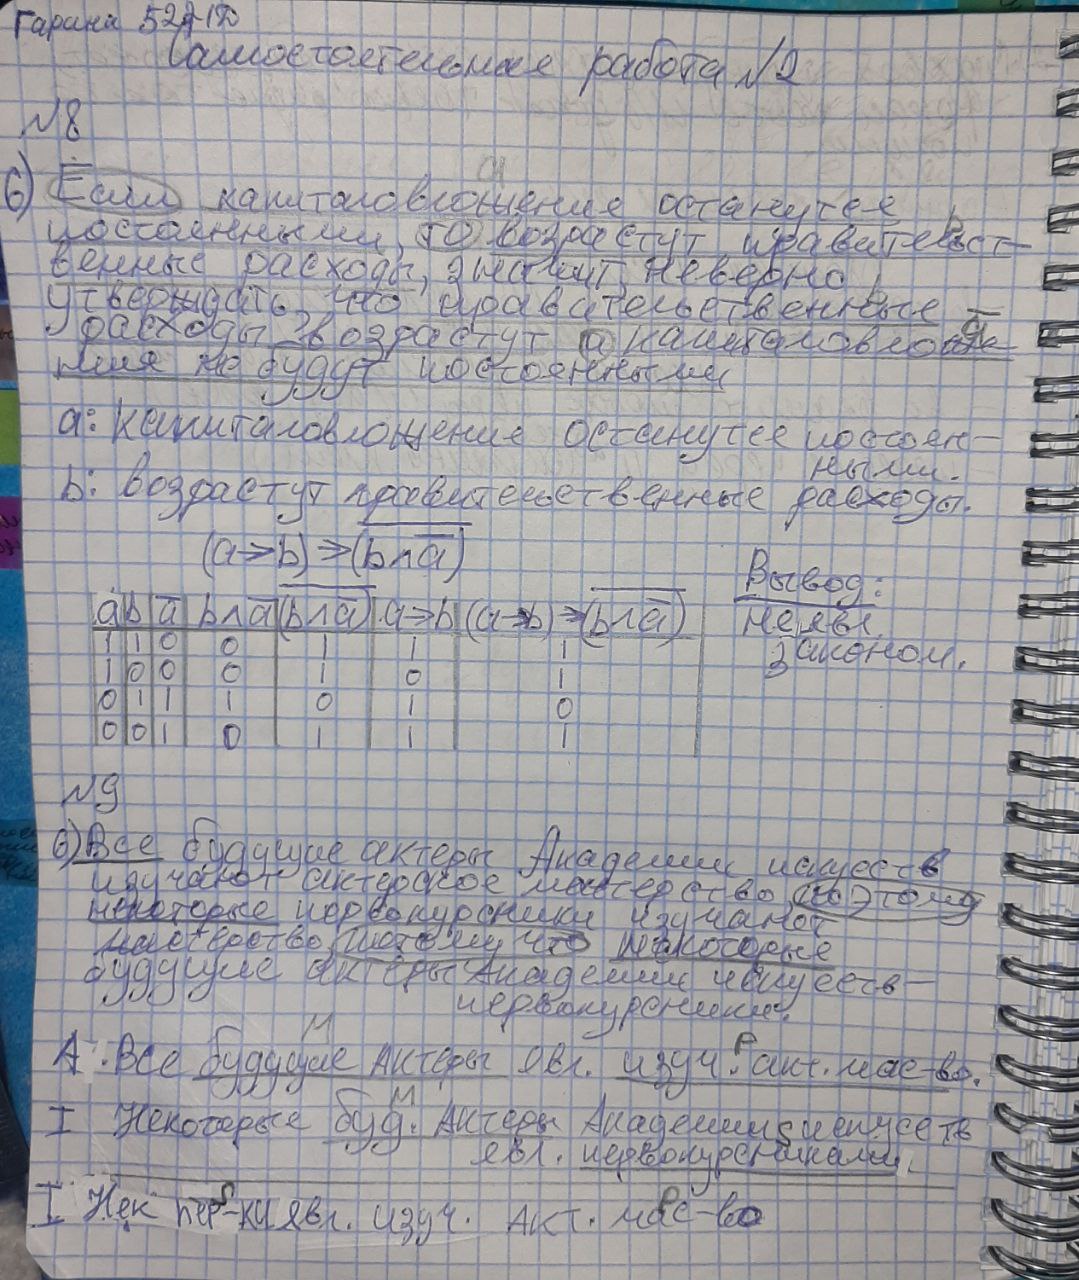 Гарина 521-1
Самостоятельная работа №2
№8
б) Если капиталовложение останутся
постоянными, то возрастут правительст-
венные расходы, значит, неверно
утверждать, что правительственные
расходы возрастут а капиталовложе
ния не будут постоянными
a: капиталовложение останутся постоян-
ными.
b: возрастут правительственные расходы.
(a→b)→(b∧a̅)
a b a̅ b∧a̅ (b∧a̅) a→b (a→b)→(b∧a̅)
1 1 0 0 1 1 1
1 0 0 0 1 0 1
0 1 1 1 0 1 0
0 0 1 0 1 1 1
Вывод:
не явл.
законом.
№9
б) Все будущие актеры Академии искусств
изучают актерское мастерство, поэтому
некоторые первокурсники изучают
мастерство, потому что некоторые
будущие актёры Академии искусств -
первокурсники.
M P
A. Все будущие актеры явл. изуч. акт. мас-во.
M S
I Некоторые буд. Актеры Академии искусств
явл. первокурсниками.
S P
I Нек пер-ки явл. изуч. акт. мас-во